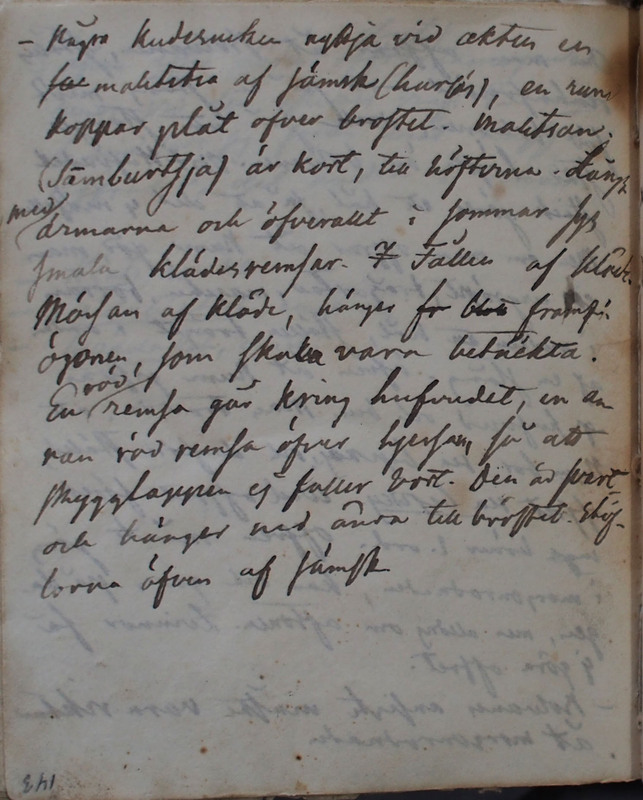 – Några kudesnicken nyttja vid äkten en
malitsia af sämsk (hurjös), en rund
Koppar plåt öfver bröstet. malitsan
(Sämburtsja) är kort, till höfterna. Längs
med
ärmarna och öfverallt i sommar sys
smala klädesremsar. Fållen af kläde.
Mössan af kläde, hänger för blott framför
ögonen, som skola vara betäckta.
röd
En remsa går kring hufvudet, en an
nan röd remsa öfver hjessan, så att
skygglappen ej faller bort. Den är svart
och hänger ned ända till bröstet. Stöf-
lorna öfven af sämsk
143